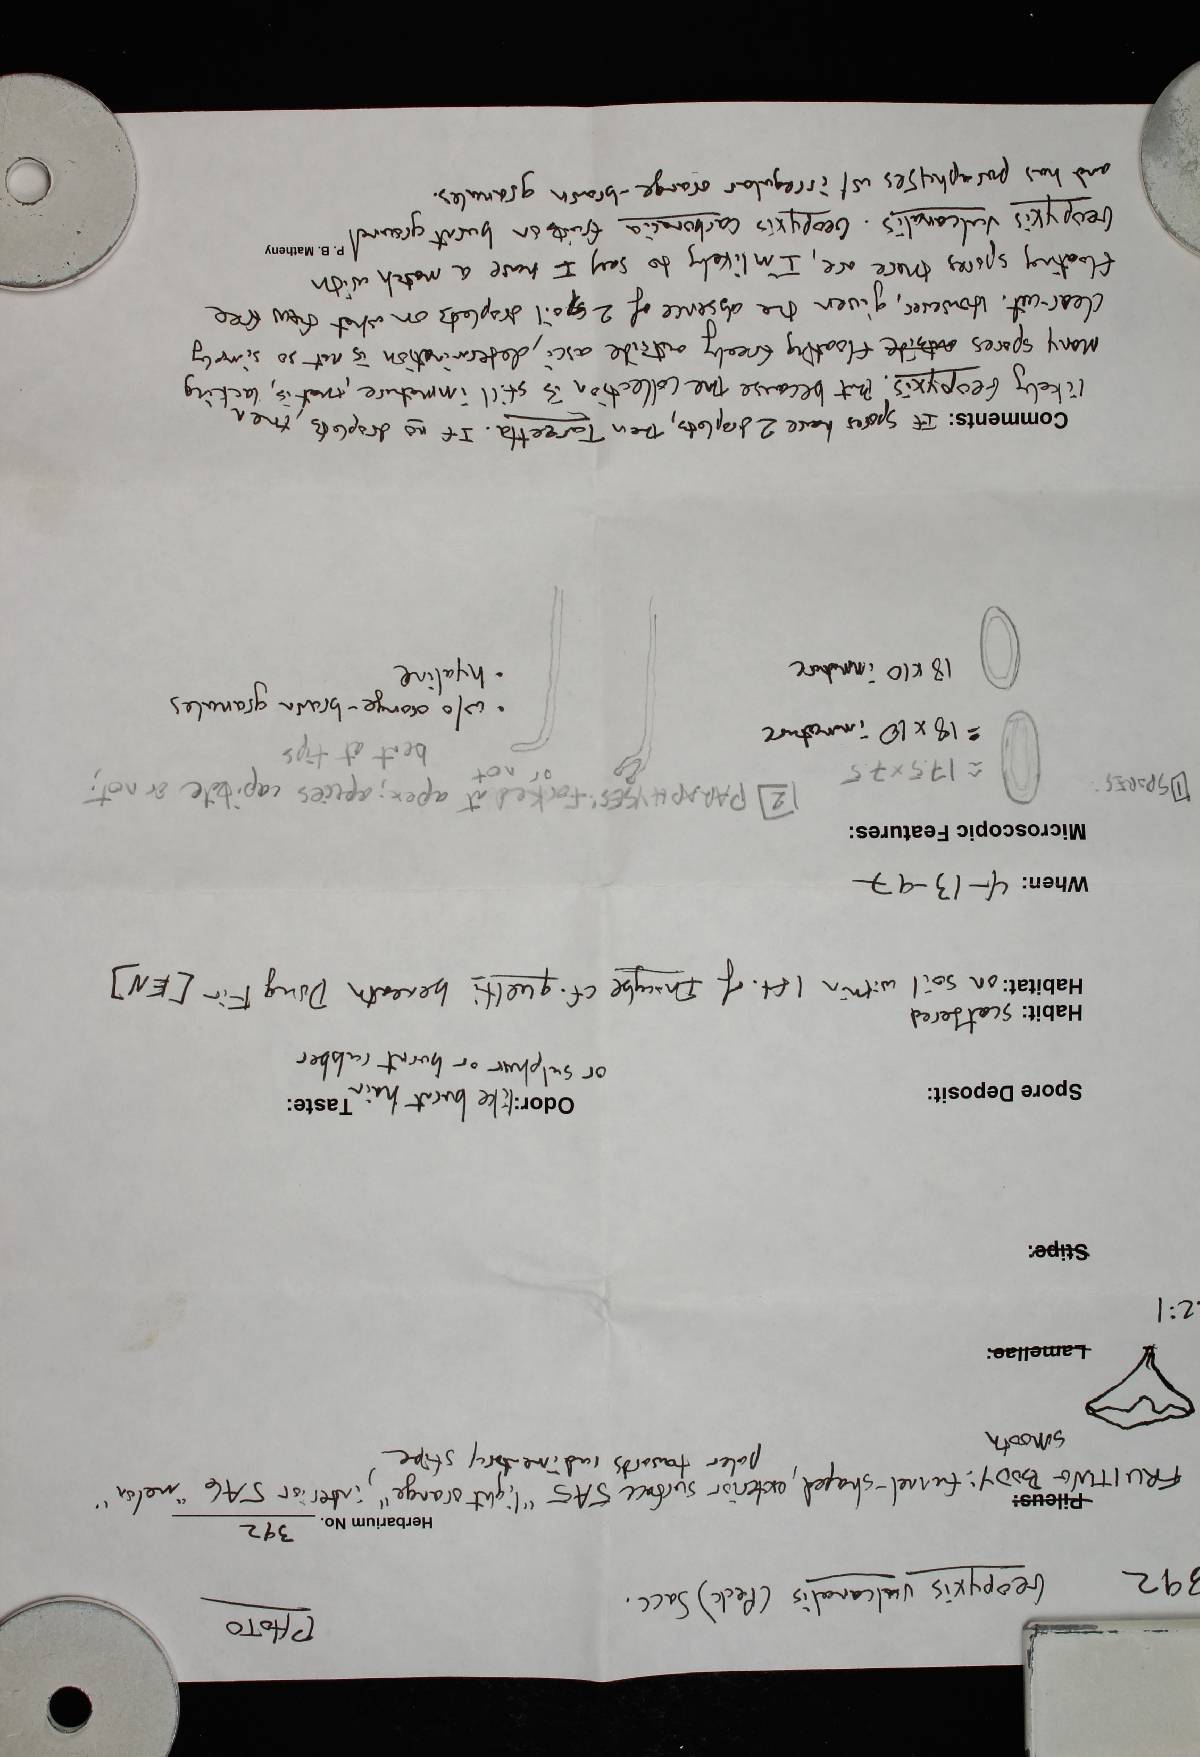 PHOTO
392 Geopyxis vulcanalis (Peck) Sacc.
Herbarium No. 392
Pileus:
FRUITING BODY: funnel-shaped, exterior surface 5A5 "light orange", interior 5A6 "melon"
smooth paler towards rudimentary stipe
Lamellae:
2:1
Stipe:
Spore Deposit: Odor: like burnt hair Taste:
or sulphur or burnt rubber
Habit: scattered
Habitat: on soil within 1 ft. of Inocybe cf. queletii beneath Doug Fir [EN]
When: 4-13-97
Microscopic Features:
1 SPORES: 2 PARAPHYSES: forked at apex; apices capitate or not;
or not bent at tips
= 17.5 x 7.5
= 18 x 10 immature
• w/o orange-brown granules
18 x 10 immature
• hyaline
Comments: If spores have 2 droplets, then Tarzetta. If no droplets, then
likely Geopyxis. But because the collection is still immature, that is, lacking
many spores outside floating freely outside asci, determination is not so simply
clear-cut. However, given the absence of 2 oil droplets on what few free
floating spores there are, I'm likely to say I have a match with
Geopyxis vulcanalis. Geopyxis carbonaria fruits on burnt ground
P. B. Matheny
and has paraphyses w/ irregular orange-brown granules.